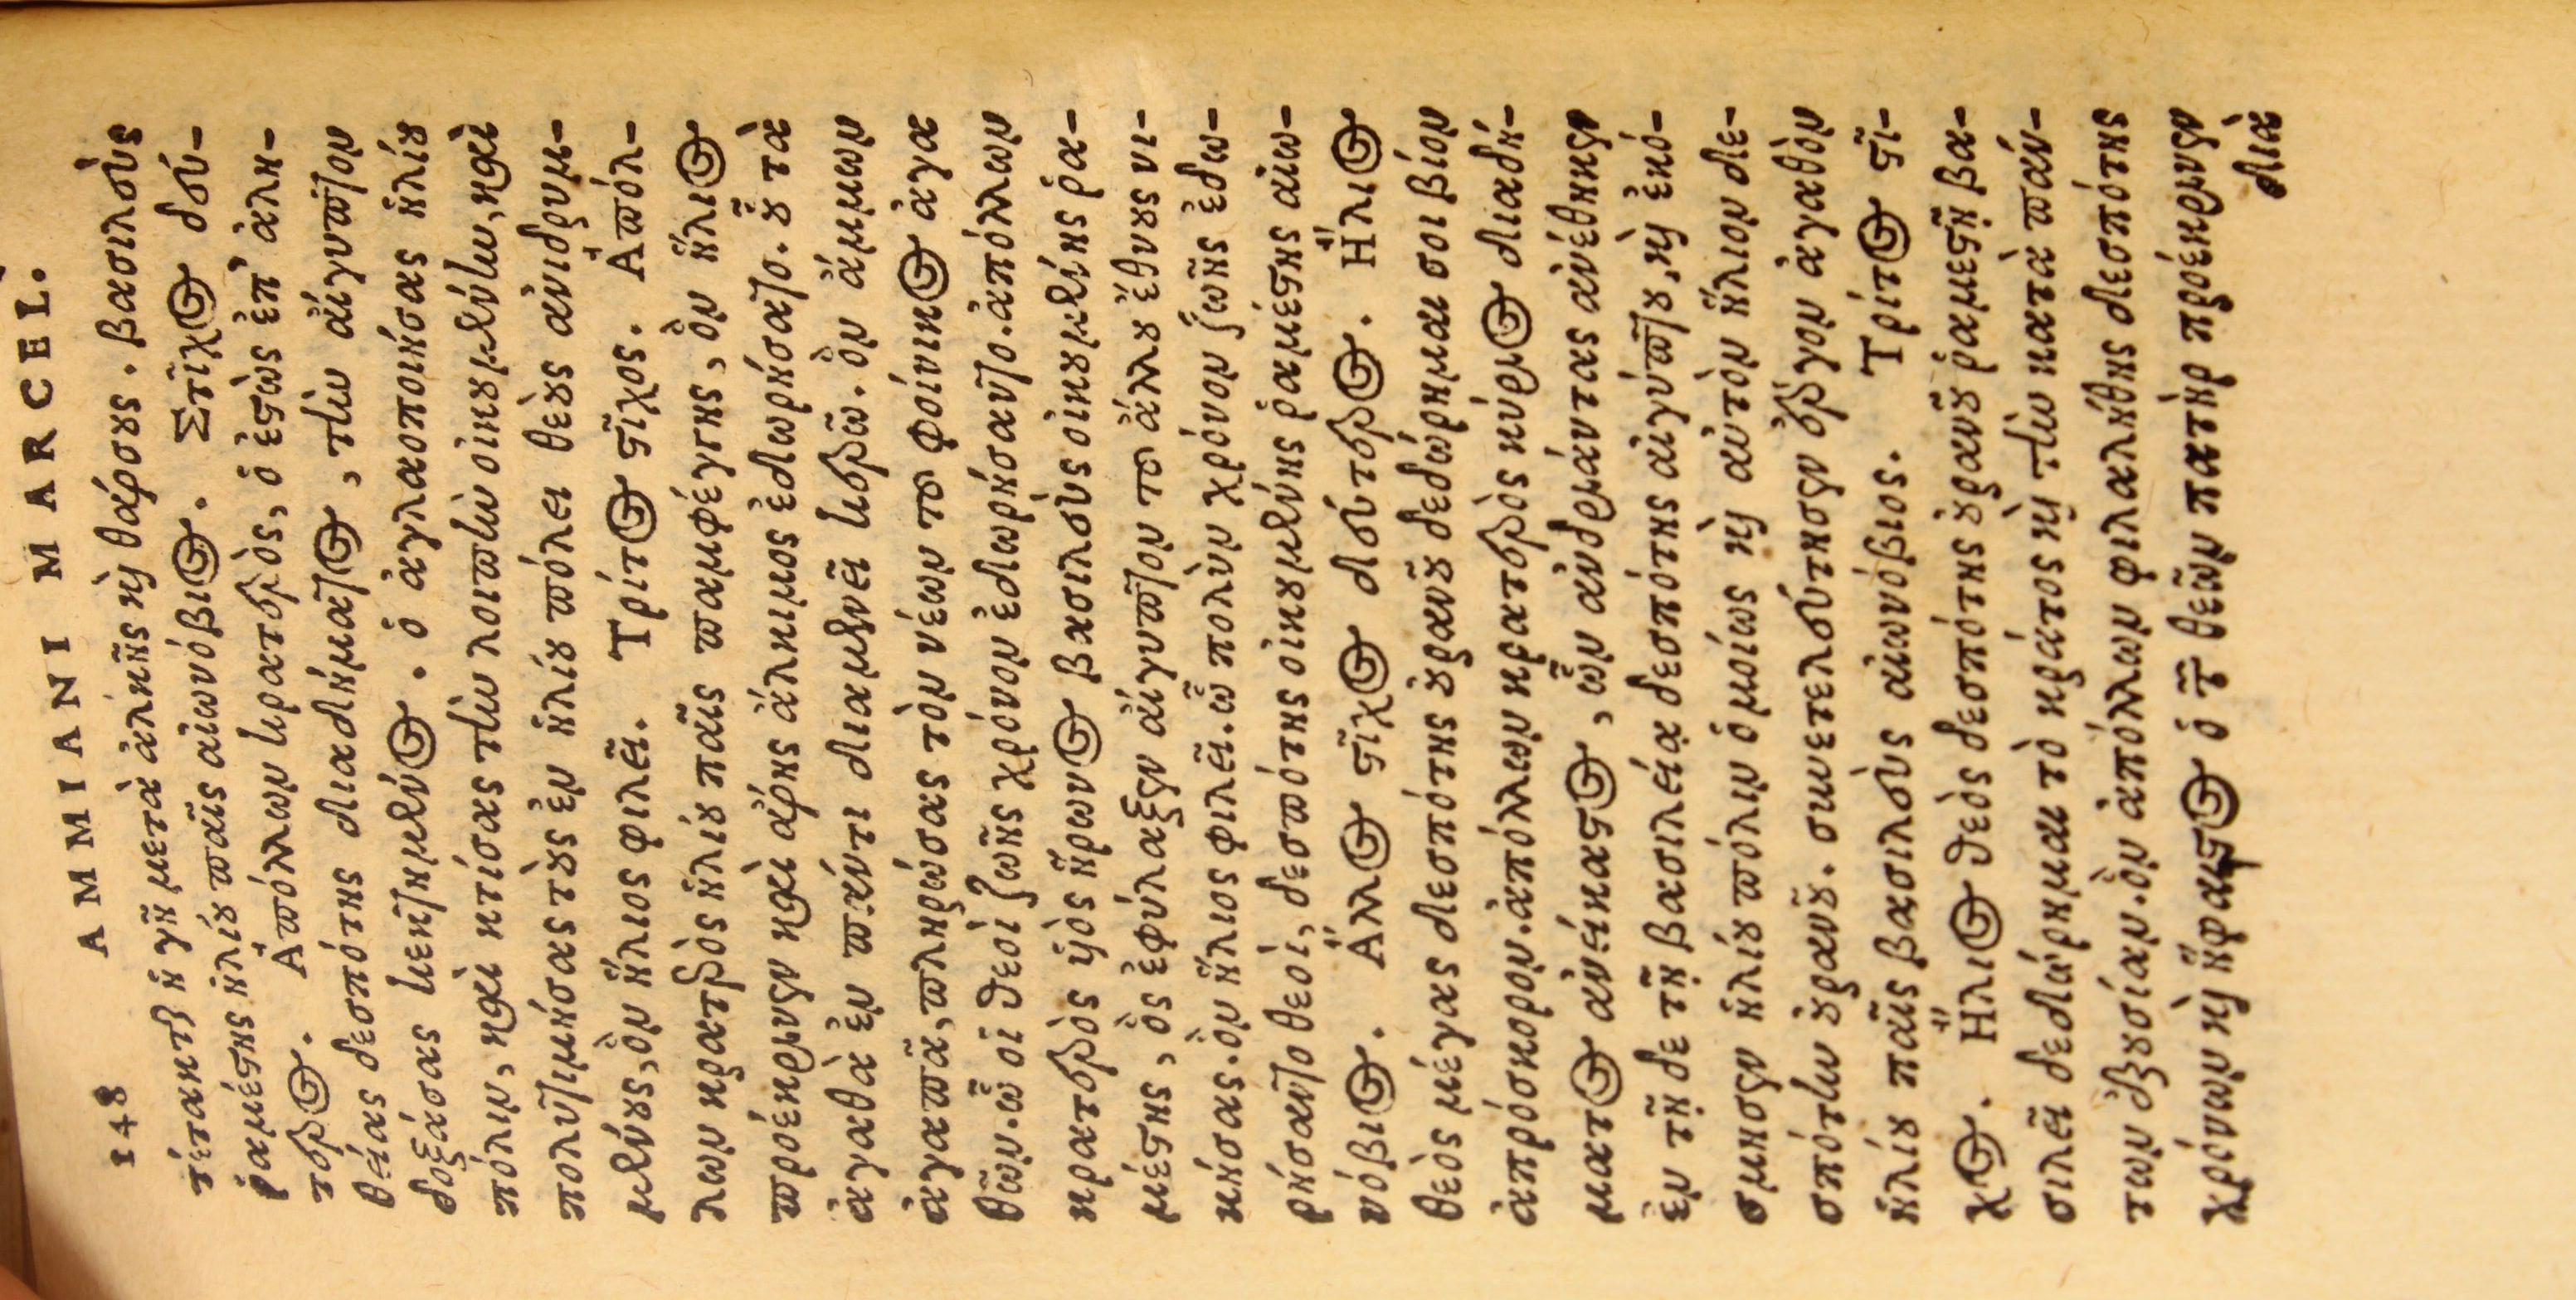 148 AMMIANI MARCEL.
τέτακται ἡ γῆ μετὰ ἀλκῆς καὶ θάρσους. βασιλεὺς
ῥαμέστης ἡλίου παῖς αἰωνόβιος. Στίχος δεύ-
τερος. Ἀπόλλων κρατερὸς, ὁ ἑστὼς ἐπ' ἀλη-
θείας δεσπότης διαδήματος, τὴν αἴγυπτον
δοξάσας κεκτημένος. ὁ ἀγλαοποιήσας ἡλίου
πόλιν, καὶ κτίσας τὴν λοιπὴν οἰκουμένην, καὶ
πολυτιμήσας τοὺς ἐν ἡλίου πόλει θεοὺς ἀνιδρυμ-
μένους, ὃν ἥλιος φιλεῖ. Τρίτος στίχος. Ἀπόλ-
λων κρατερὸς ἡλίου παῖς παμφέγγης, ὃν ἥλιος
προέκρινεν καὶ ἄρης ἄλκιμος ἐδωρήσατο. οὗ τὰ
ἀγαθὰ ἐν παντὶ διαμένει καιρῷ. ὃν ἄμμων
ἀγαπᾷ, πληρώσας τὸν νέων τοῦ φοίνικος ἀγα
θῶν. ᾧ οἱ θεοὶ ζωῆς χρόνον ἐδωρήσαντο. ἀπόλλων
κρατερὸς υἱὸς ἥρωνος βασιλεὺς οἰκουμένης ῥα-
μέστης, ὃς ἐφύλαξεν αἴγυπτον τοῦ ἄλλου ἔθνους νι-
κήσας. ὃν ἥλιος φιλεῖ. ᾧ πολὺν χρόνον ζωῆς ἐδω-
ρήσαντο θεοὶ, δεσπότης οἰκουμένης ῥαμέστης αἰω-
νόβιος. Ἄλλος στίχος δεύτερος. Ἥλιος
θεὸς μέγας δεσπότης οὐρανοῦ δεδώρημαι σοι βίον
ἀπρόσκορον. ἀπόλλων κρατερὸς κύριος διαδή-
ματος ἀνείκαστος, ὧν ἀνδριάντας ἀνέθηκεν
ἐν τῇ δε τῇ βασιλείᾳ δεσπότης αἰγύπτου, καὶ ἐκό-
σμησεν ἡλίου πόλιν ὁμοίως καὶ αὐτὸν ἥλιον δε-
σπότην οὐρανοῦ. συνετελεύτησεν ἔργον ἀγαθὸν
ἡλίου παῖς βασιλεὺς αἰωνόβιος. Τρίτος στί-
χος. Ἥλιος θεὸς δεσπότης οὐρανοῦ ῥαμέστῃ βα-
σιλεῖ δεδώρημαι τὸ κράτος καὶ τὴν κατὰ πάν-
των ἐξουσίαν. ὃν ἀπόλλων φιλαλήθης δεσπότης
χρόνων καὶ ἥφαιστος ὁ τῶν θεῶν πατὴρ προέκρινεν
διὰ